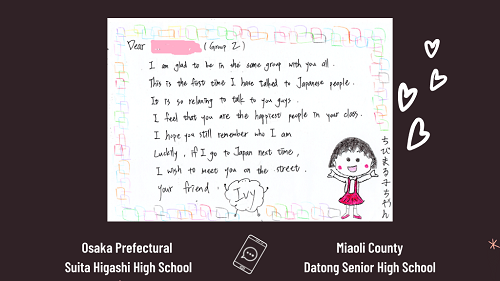 Dear (Group 2)
I am glad to be in the same group with you all.
This is the first time I have talked to Japanese people.
It is so relaxing to talk to you guys.
I feel that you are the happiest people in your class.
I hope you still remember who I am
Luckily, if I go to Japan next time,
I wish to meet you on the street.
your friend.
Ivy
ちびまる子ちゃん
Osaka Prefectural
Suita Higashi High School
Miaoli County
Datong Senior High School